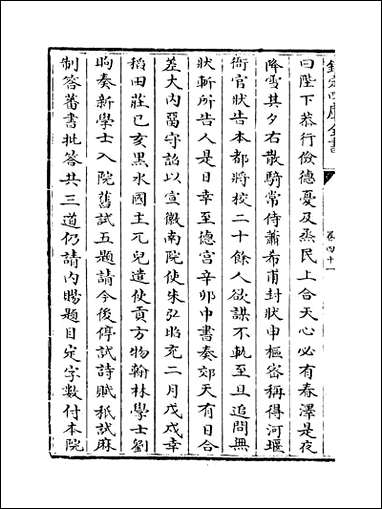 欽定四庫全書
卷四十一
曰陛下恭行儉德憂及烝民上合天心必有春澤是夜
降雪其夕右散騎常侍蕭希甫封狀申樞密稱得河堰
衙官狀告本都將校二十餘人欲謀不軌至旦追問無
狀斬所告人是日幸至德宮辛卯中書奏郊天有日合
差大內留守詔以宣徽南院使朱弘昭充二月戊戌幸
稻田莊己亥黑水國主兀兒遣使貢方物翰林學士劉
昫奏新學士入院舊試五題請今後停試詩賦秖試麻
制答蕃書批答共三道仍請內賜題目定字數付本院